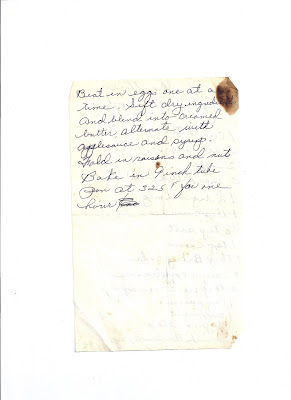 Beat in eggs one at a
time. Sift dry ingred
and blend into creamed
butter, alternate with
applesauce and syrup.
Fold in raisons and nuts
Bake in 9 inch tube
Pan at 325° for one
hour